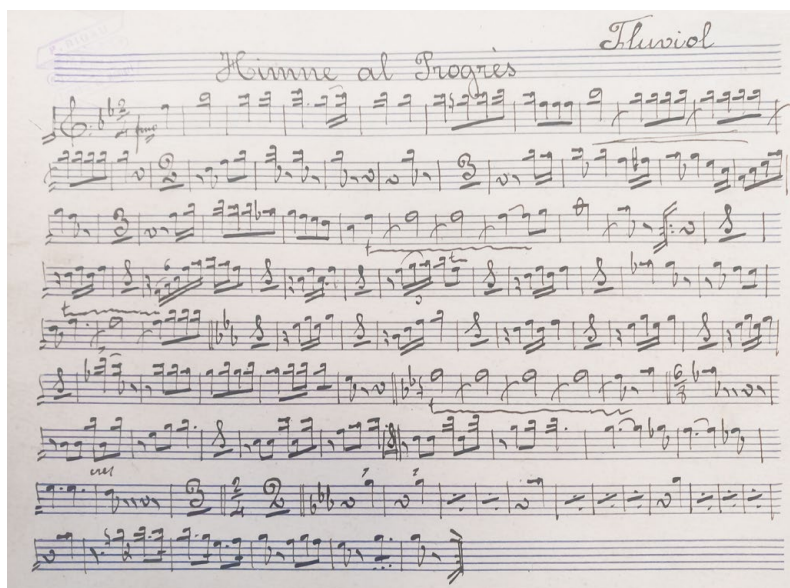 Fluviol
Himne al Progrès
cres